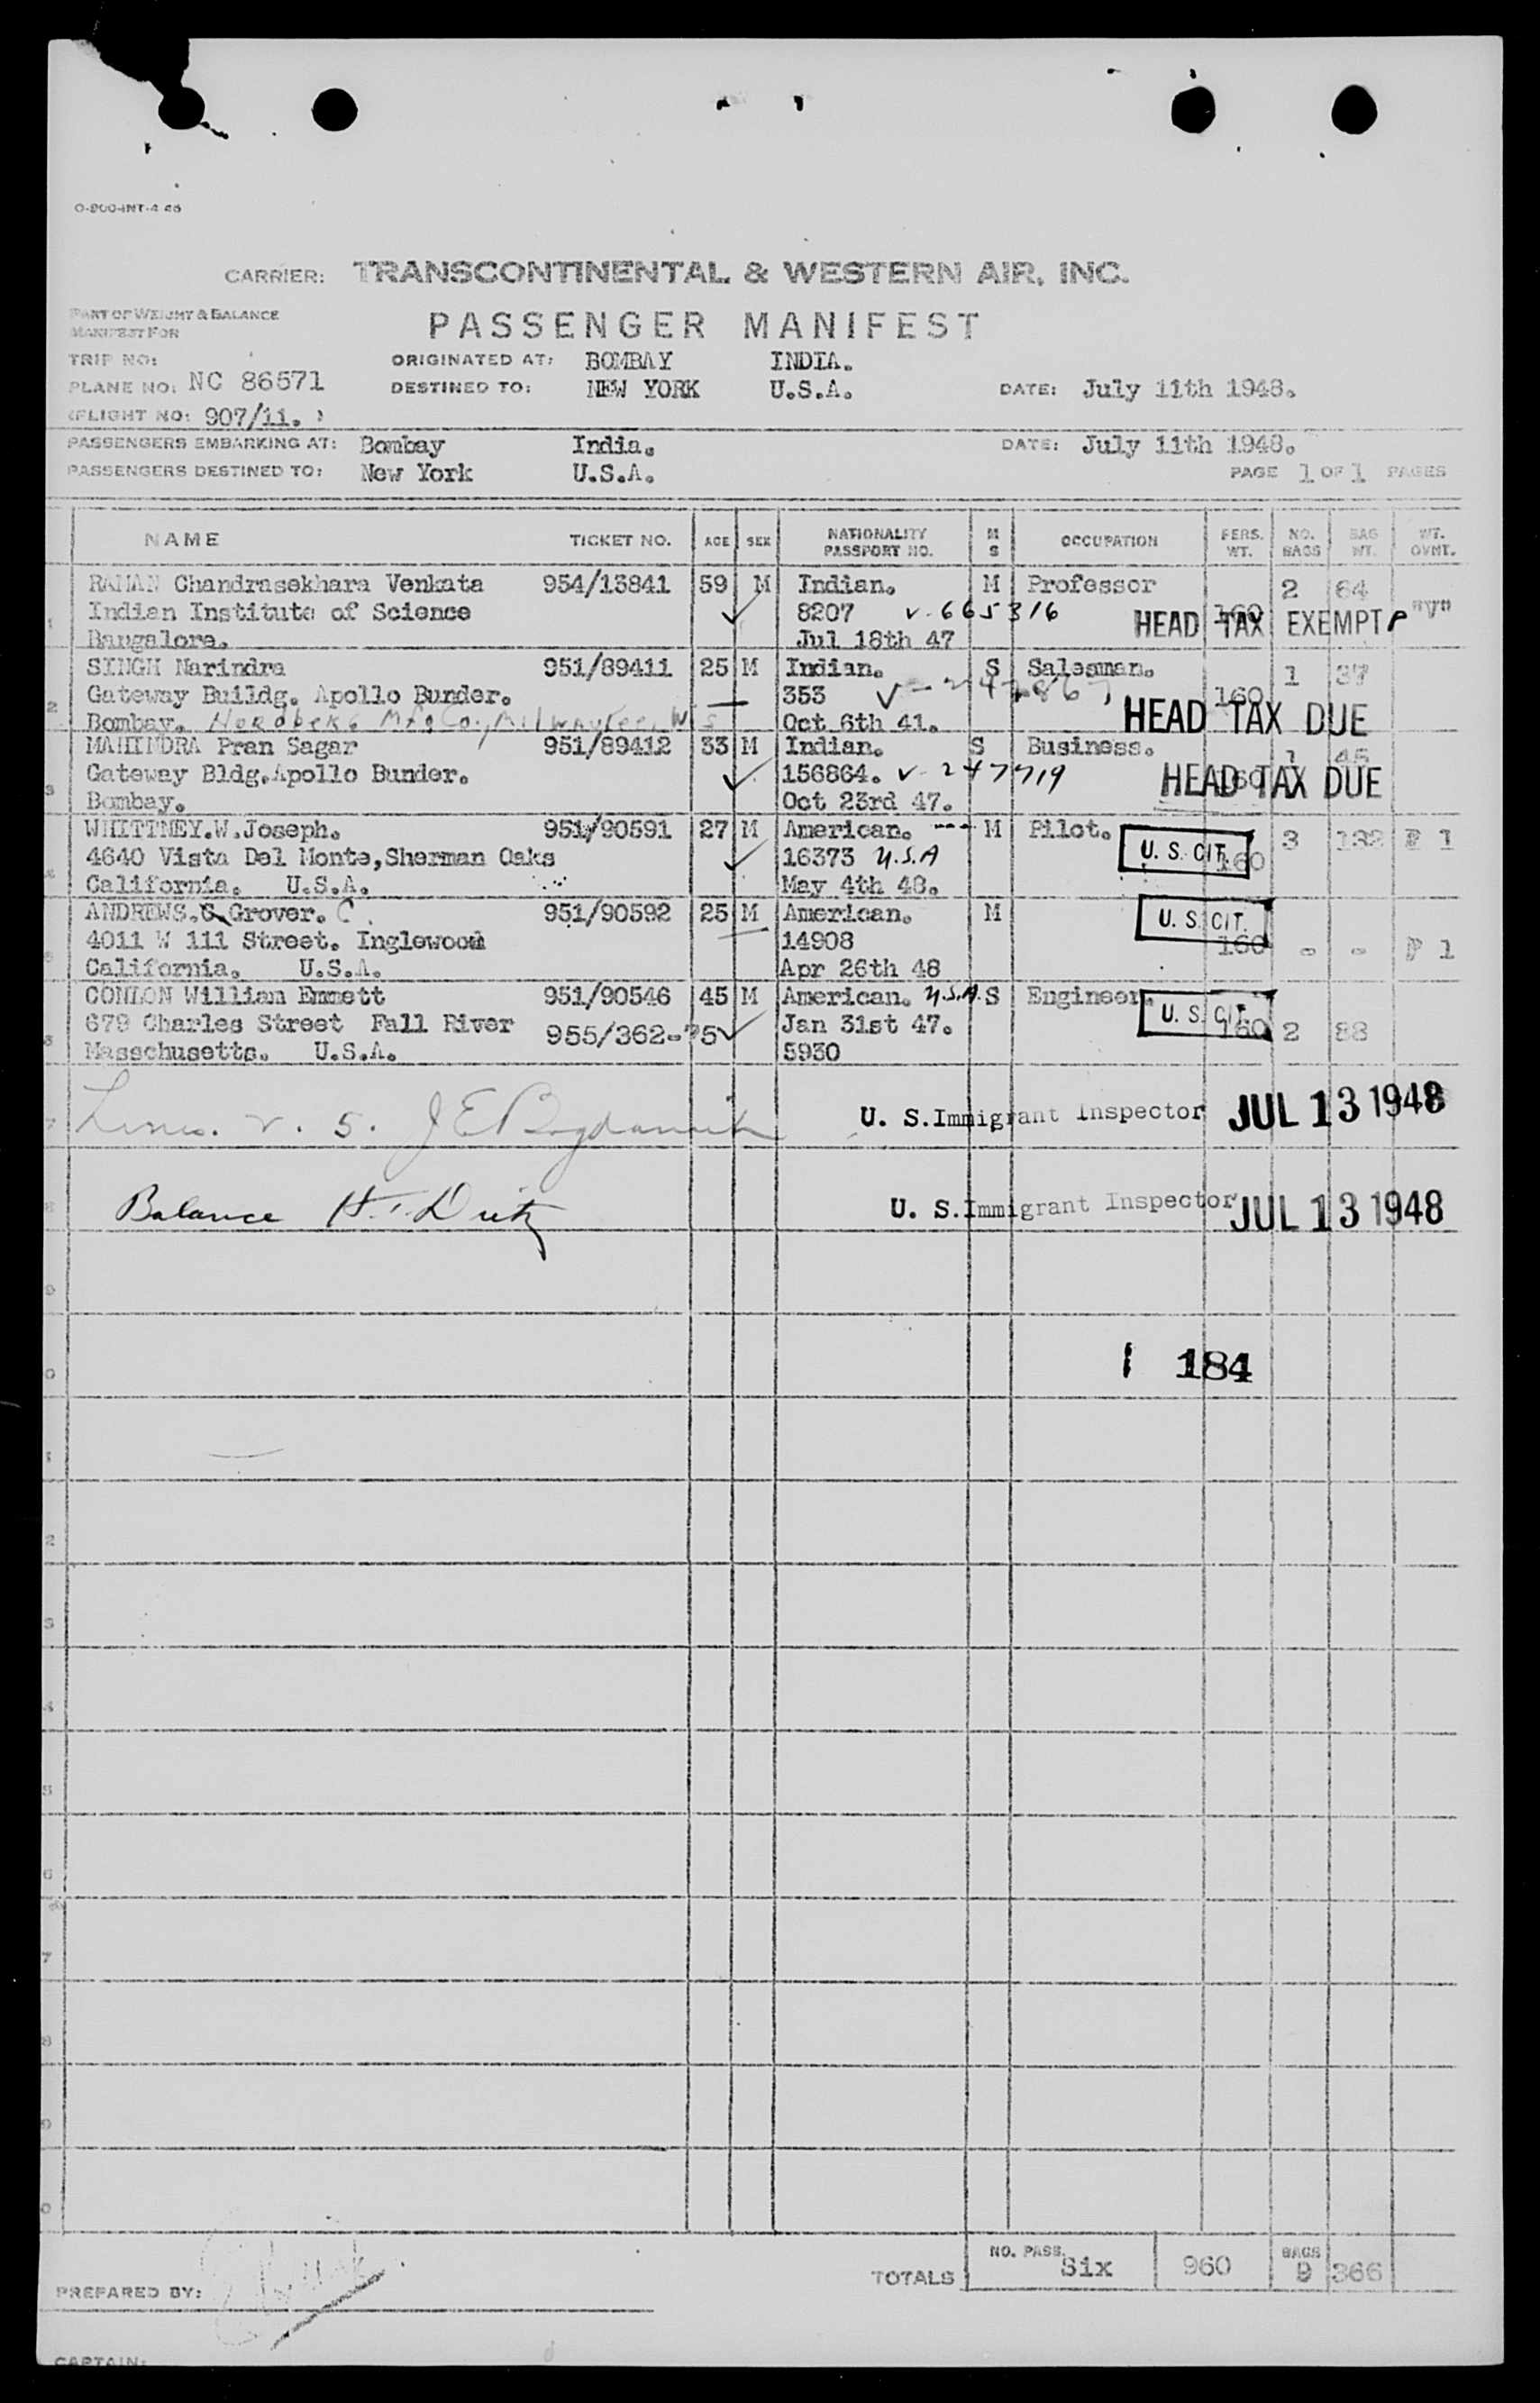 O-800-INT-4-46
CARRIER: TRANSCONTINENTAL & WESTERN AIR, INC.
PART OF WEIGHT & BALANCE
MANIFEST FOR
PASSENGER MANIFEST
TRIP NO: ORIGINATED AT: BOMBAY INDIA.
PLANE NO: NC 86571 DESTINED TO: NEW YORK U.S.A. DATE: July 11th 1948.
(FLIGHT NO: 907/11. )
PASSENGERS EMBARKING AT: Bombay India. DATE: July 11th 1948.
PASSENGERS DESTINED TO: New York U.S.A. PAGE 1 OF 1 PAGES
NAME TICKET NO. AGE SEX NATIONALITY PASSPORT NO. M S OCCUPATION PERS. WT. NO. BAGS BAG WT. WT. GVMT.
RAMAN Chandrasekhara Venkata 954/13841 59 M Indian. M Professor 2 64
Indian Institute of Science 8207 V-665316 160 HEAD TAX EXEMPT P "V"
Bangalore. Jul 18th 47
SINGH Narindra 951/89411 25 M Indian. S Salesman. 1 37
Gateway Buildg. Apollo Bunder. 353 160
Bombay. Oct 6th 41. HEAD TAX DUE
MAHINDRA Pran Sagar 951/89412 33 M Indian. S Business. 1 45
Gateway Bldg.Apollo Bunder. 156864. V-247719 160 HEAD TAX DUE
Bombay. Oct 23rd 47.
WHITTNEY.W.Joseph. 951/90591 27 M American. --- M Pilot. 3 132 P 1
4640 Vista Del Monte,Sherman Oaks 16373 U.S.A U. S. CIT. 160
California. U.S.A. May 4th 48.
ANDREWS. Grover. C. 951/90592 25 M American. M U. S. CIT.
4011 W 111 Street. Inglewood 14908 160 - - P 1
California. U.S.A. Apr 26th 48
CONLON William Emmett 951/90546 45 M American. U.S.A. S Engineer. U. S. CIT.
679 Charles Street Fall River 955/362-75 Jan 31st 47. 160 2 88
Masschusetts. U.S.A. 5930
U. S. Immigrant Inspector JUL 13 1948
Balance U. S. Immigrant Inspector JUL 13 1948
184
TOTALS NO. PASS. Six 960 BAGS 9 366
PREPARED BY:
CAPTAIN: